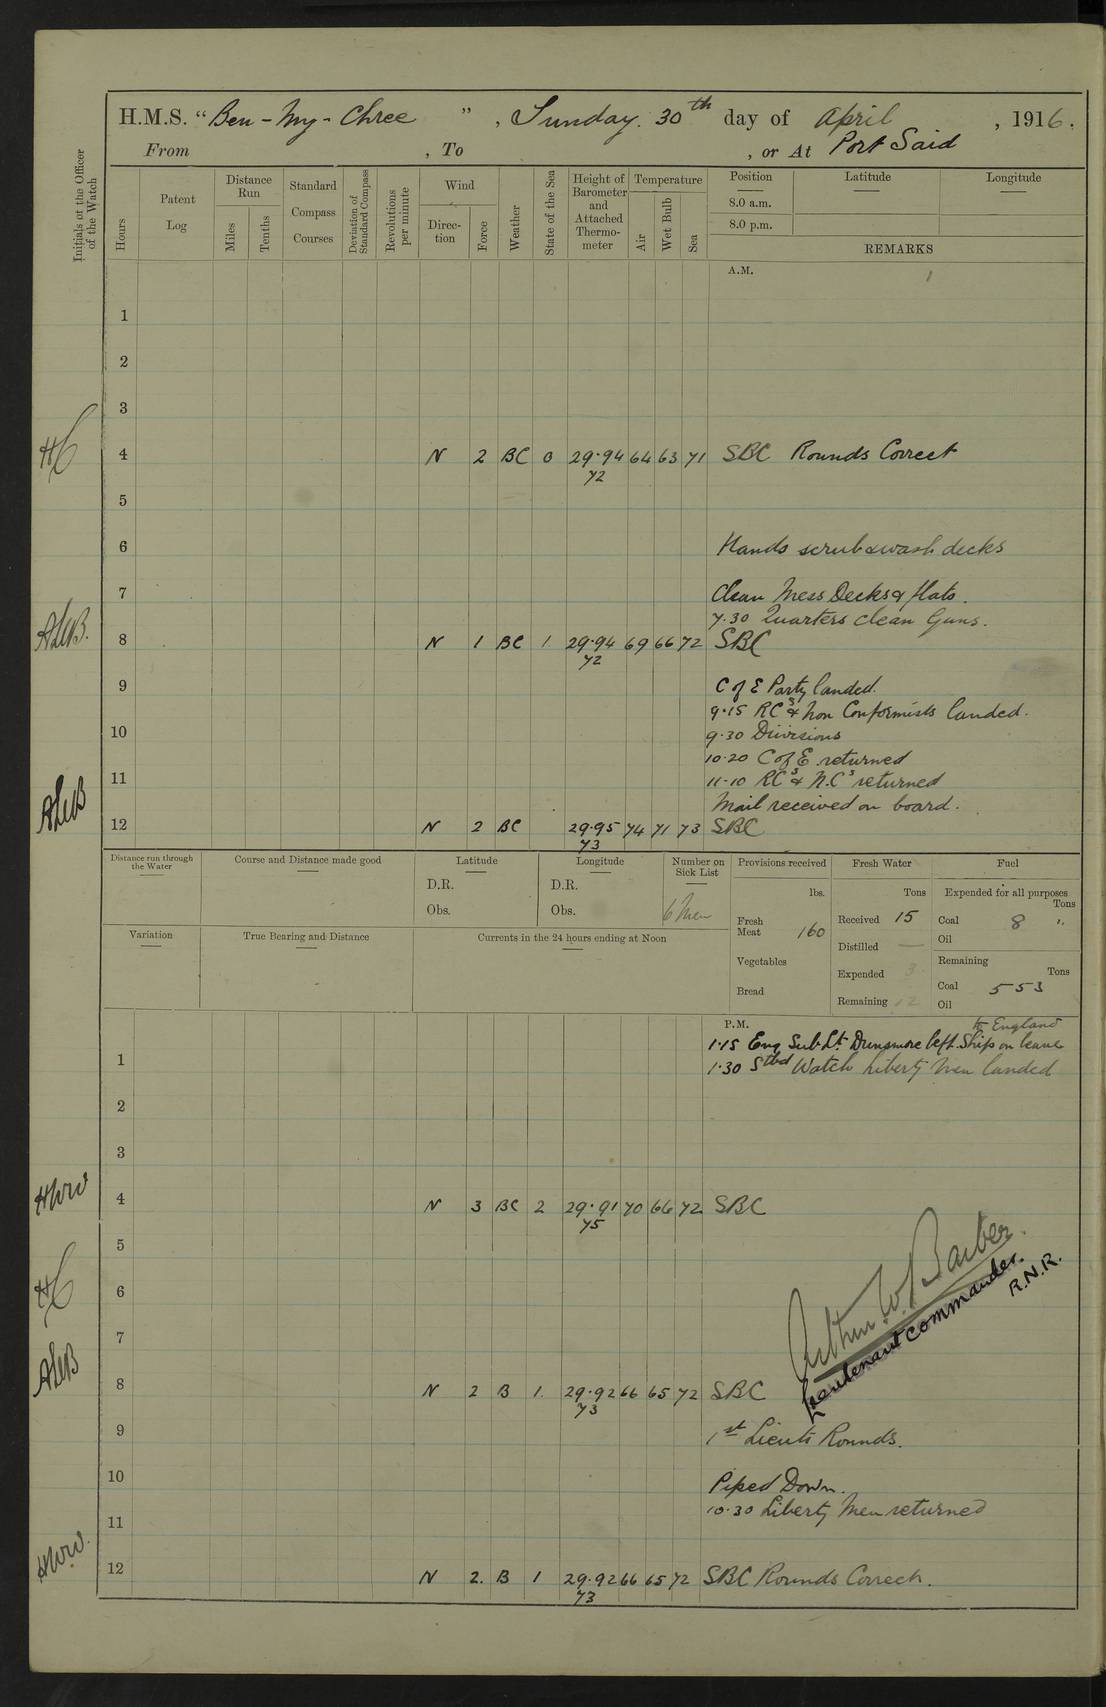 H.M.S. “ Ben-My-Chree ” , Sunday. 30th day of April , 1916.
From , To , or At Port Said
Initials of the Officer of the Watch
Hours
Patent Log
Distance Run
Miles
Tenths
Standard Compass Courses
Deviation of Standard Compass
Revolutions per minute
Wind
Direction
Force
Weather
State of the Sea
Height of Barometer and Attached Thermometer
Temperature
Air
Wet Bulb
Sea
Position Latitude Longitude
8.0 a.m.
8.0 p.m.
REMARKS
A.M.
1
2
3
HC 4 N 2 BC 0 29.94 64 63 71 SBC Rounds Correct
72
5
6 Hands scrub & wash decks
7 Clean Mess Decks & flats.
7.30 Quarters clean Guns.
8 N 1 BC 1 29.94 69 66 72 SBC
72
9 C of E Party landed.
9.15 RCs & Non Conformists landed.
10 9.30 Divisions
10.20 C of E returned
11 11-10 RCs & N.Cs returned
Mail received on board.
12 N 2 BC 29.95 74 71 73 SBC
73
Distance run through the Water
Course and Distance made good
Latitude
D.R.
Obs.
Longitude
D.R.
Obs.
Number on Sick List
6 Men
Provisions received
lbs.
Fresh Meat 160
Vegetables
Bread
Fresh Water
Tons
Received 15
Distilled —
Expended 3
Remaining 12
Fuel
Expended for all purposes
Tons
Coal 8 "
Oil
Remaining
Tons
Coal 553
Oil
Variation
True Bearing and Distance
Currents in the 24 hours ending at Noon
P.M.
to England
1.15 Eng Sub.Lt. Dunsmore left Ship on leave
1 1.30 Stbd Watch Liberty Men landed
2
3
HWW 4 N 3 BC 2 29.91 70 66 72 SBC
75
5
HC 6
7
8 N 2 B 1. 29.92 66 65 72 SBC
73
Arthur W. Barber.
Lieutenant Commander. R.N.R.
9 1st Lieuts Rounds.
10 Piped Down.
10.30 Liberty Men returned
11
HWW. 12 N 2. B 1 29.92 66 65 72 SBC Rounds Correct.
73